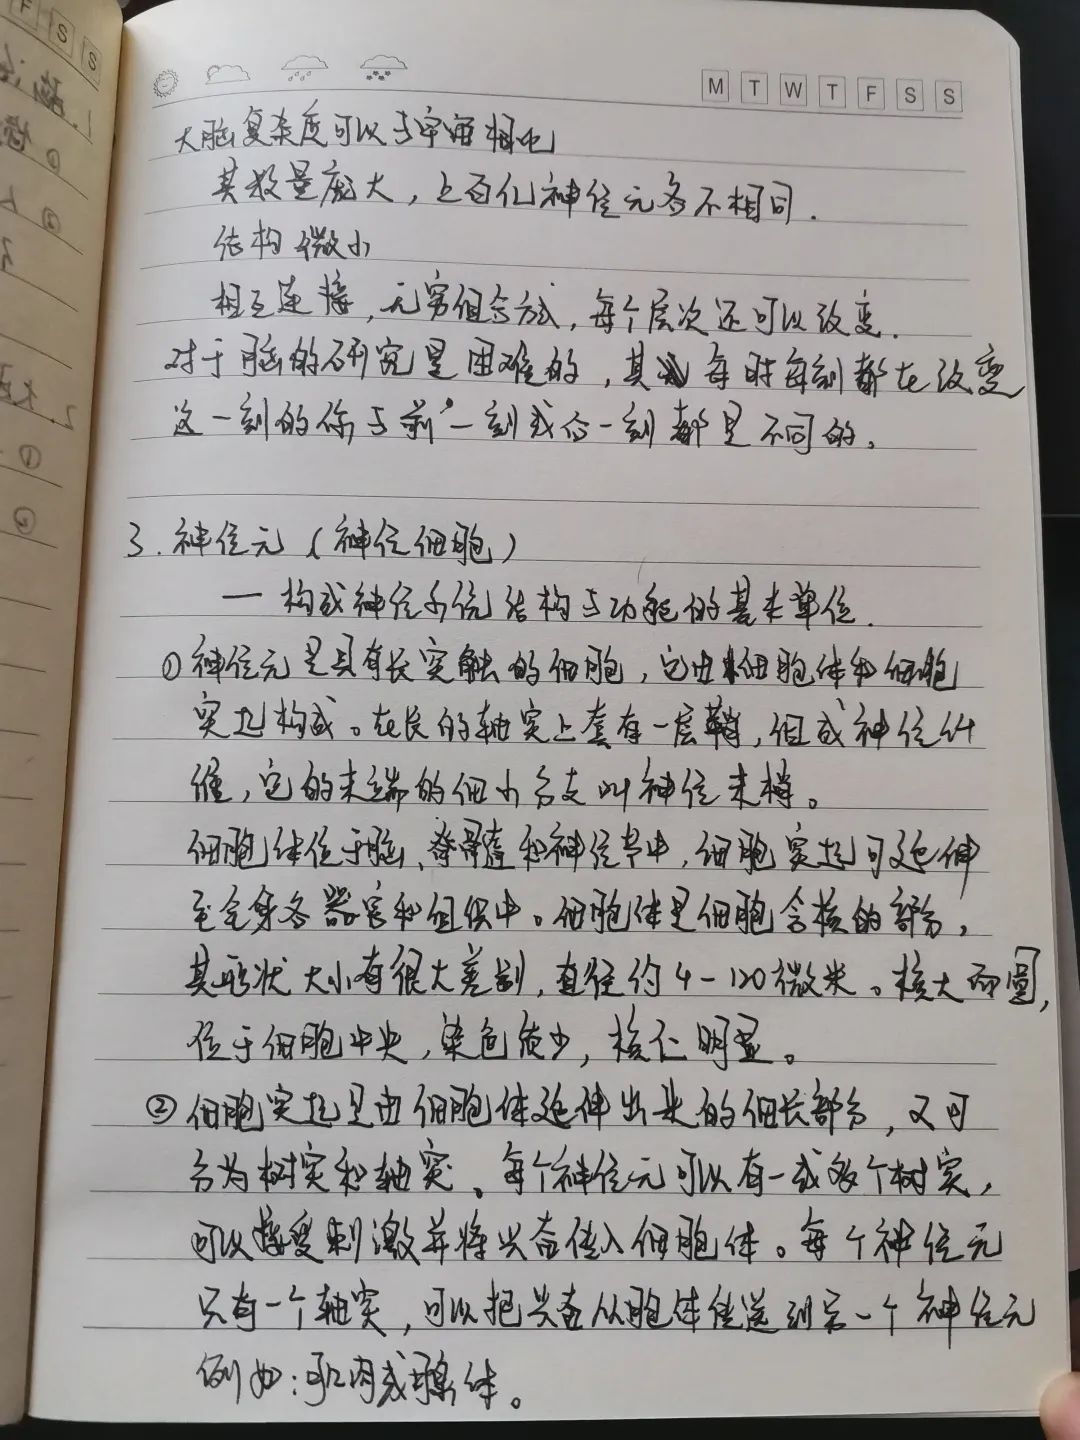 M T W T F S S
大脑复杂度可以与宇宙相比
其数量庞大，上百亿神经元各不相同.
结构微小
相互连接，无穷组合方式，每个层次还可以改变.
对于脑的研究是困难的，其每时每刻都在改变
这一刻的你与前一刻或后一刻都是不同的。
3.神经元（神经细胞）
一 构成神经系统结构与功能的基本单位.
①神经元是具有长突触的细胞，它由细胞体和细胞
突起构成。在长的轴突上套有一层鞘，组成神经纤
维，它的末端的细小分支叫神经末梢。
细胞体位于脑、脊髓和神经节中，细胞突起可延伸
至全身各器官和组织中。细胞体是细胞含核的部分，
其形状大小有很大差别，直径约4-120微米。核大而圆，
位于细胞中央，染色质少，核仁明显。
②细胞突起是由细胞体延伸出来的细长部分，又可
分为树突和轴突。每个神经元可以有一或多个树突，
可以接受刺激并将兴奋传入细胞体。每个神经元
只有一个轴突，可以把兴奋从胞体传送到另一个神经元
例如：肌肉或腺体。